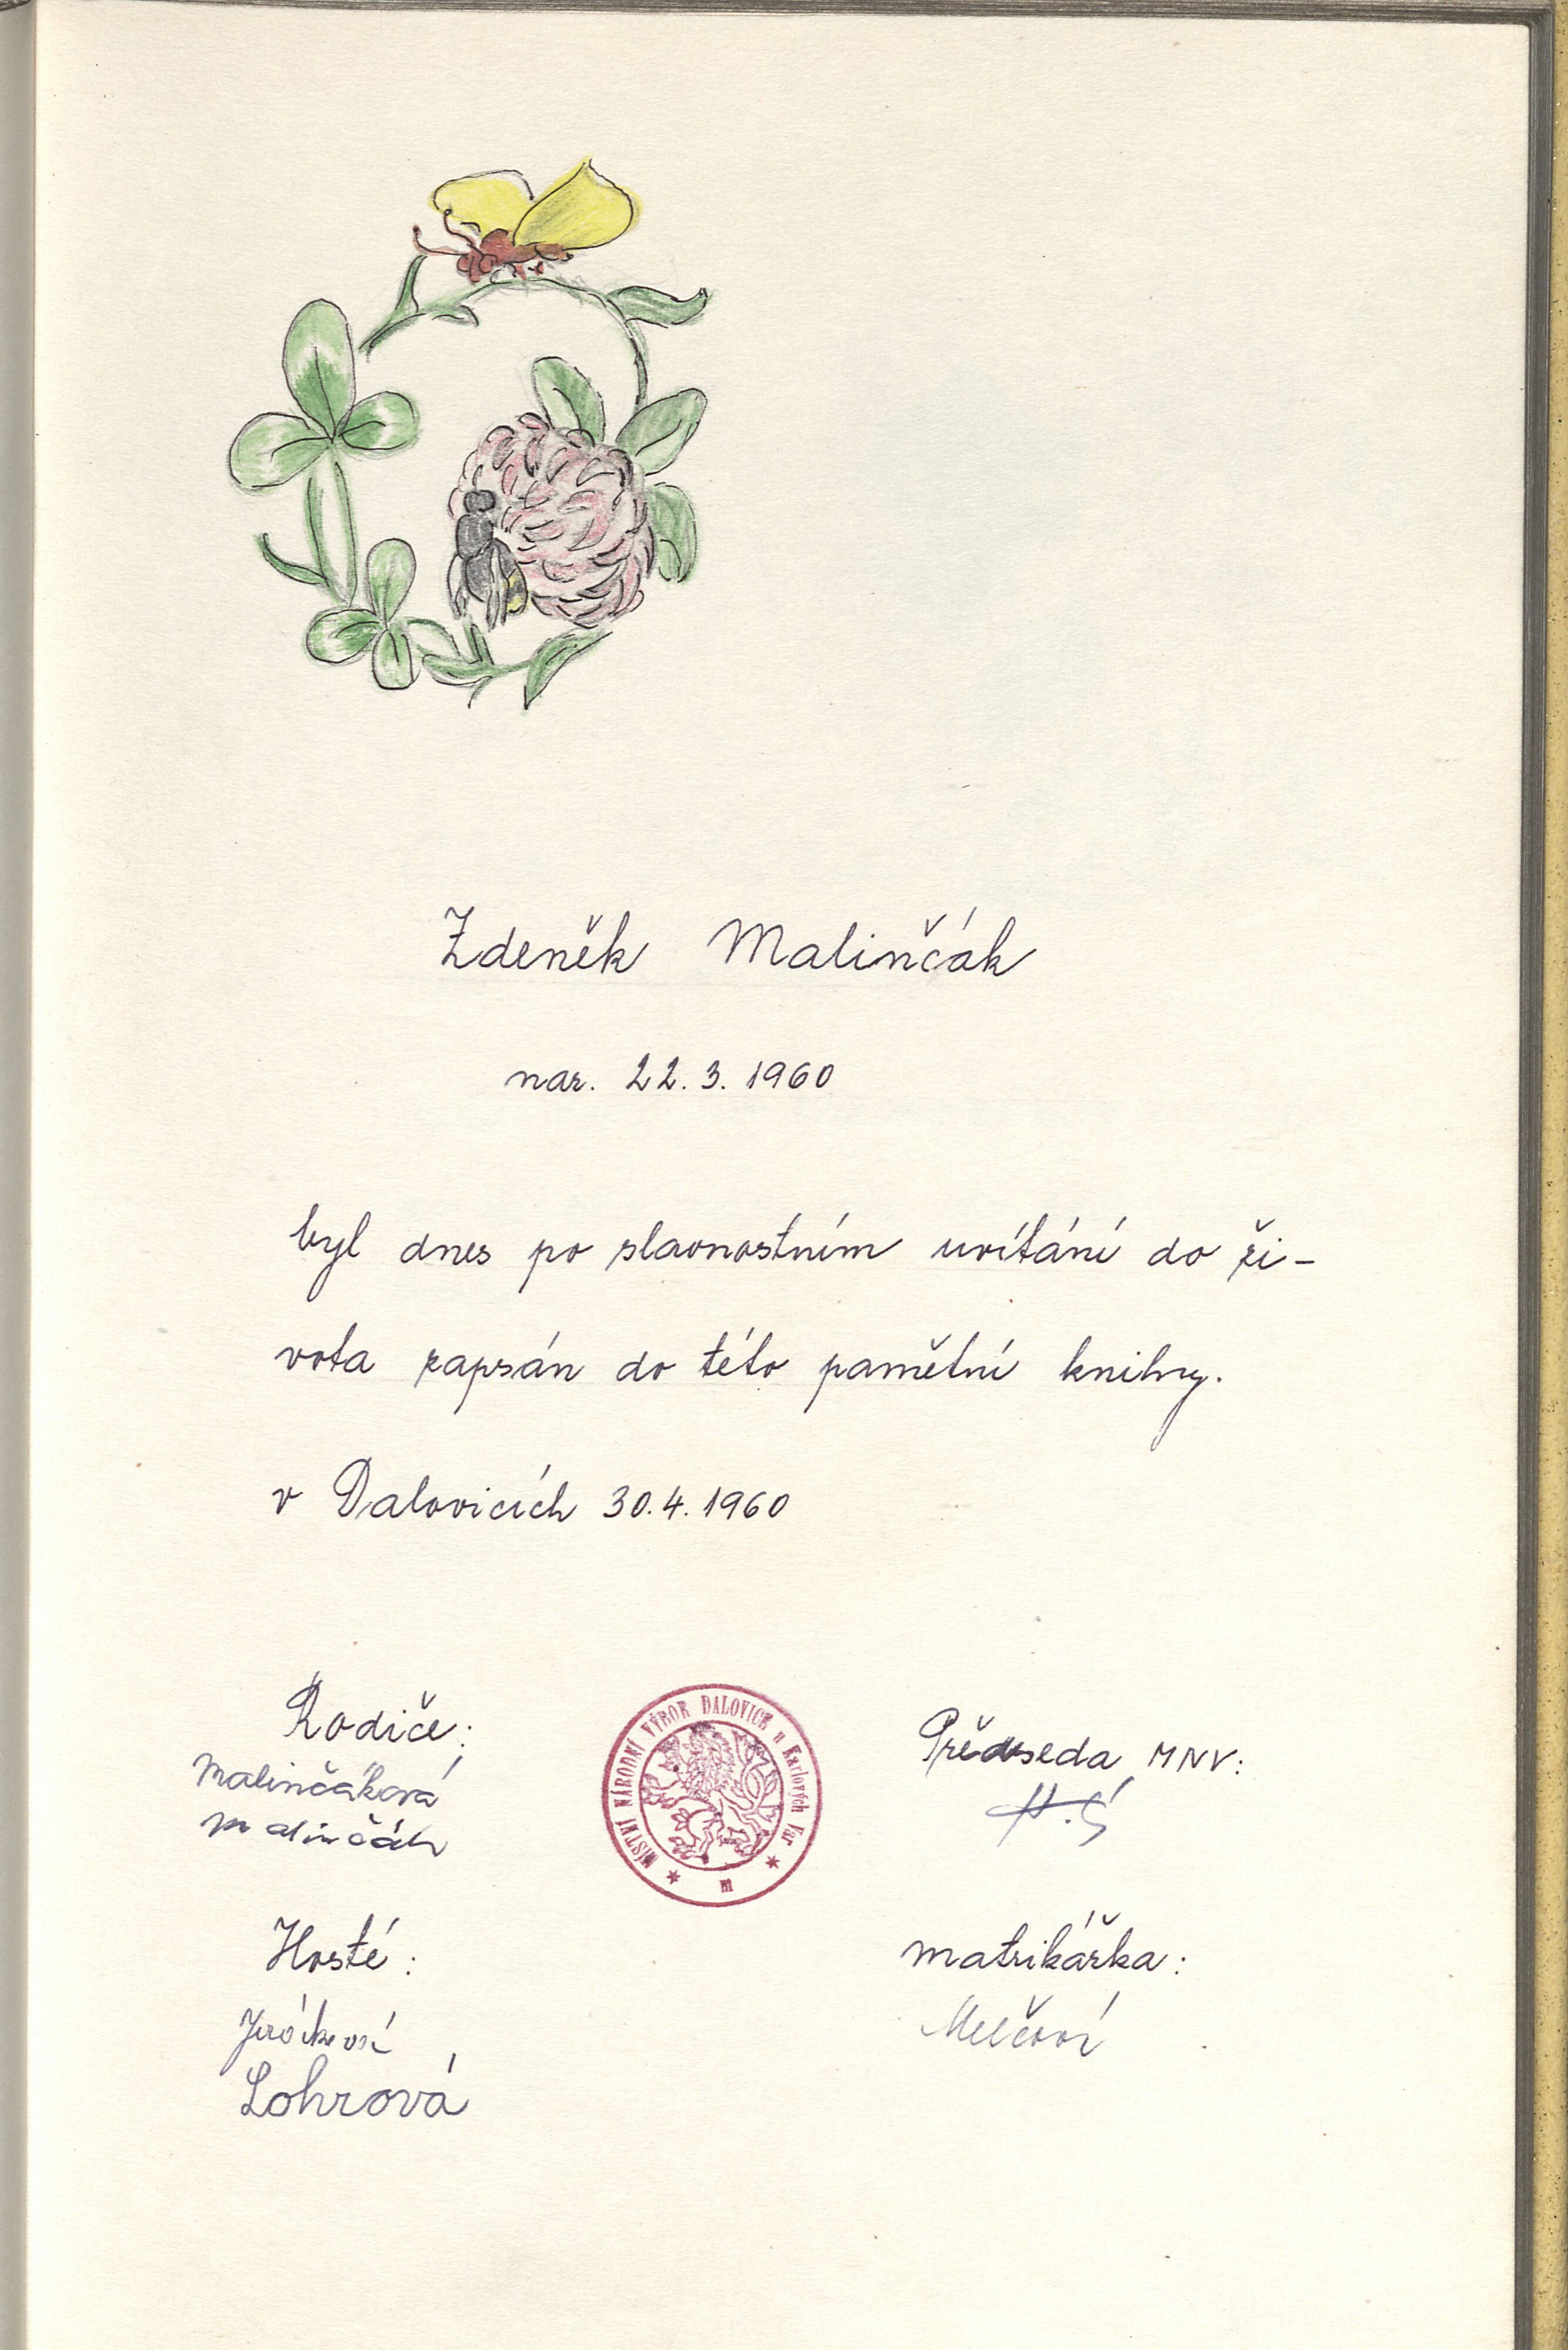 Zdeněk Malinčák
nar. 22. 3. 1960
byl dnes po slavnostním uvítání do ži-
vota zapsán do této pamětní knihy.
v Dalovicích 30. 4. 1960
Rodiče:
Malinčáková
Malinčák
MÍSTNÍ NÁRODNÍ VÝBOR DALOVICE u Karlových Var
m
Předseda MNV:
Hosté:
Lohrová
matrikářka: